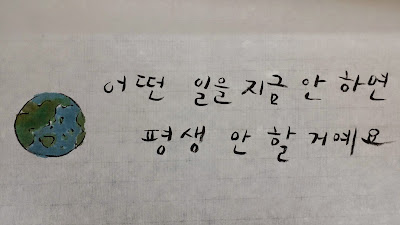 어떤 일을 지금 안 하면
평생 안 할 거예요